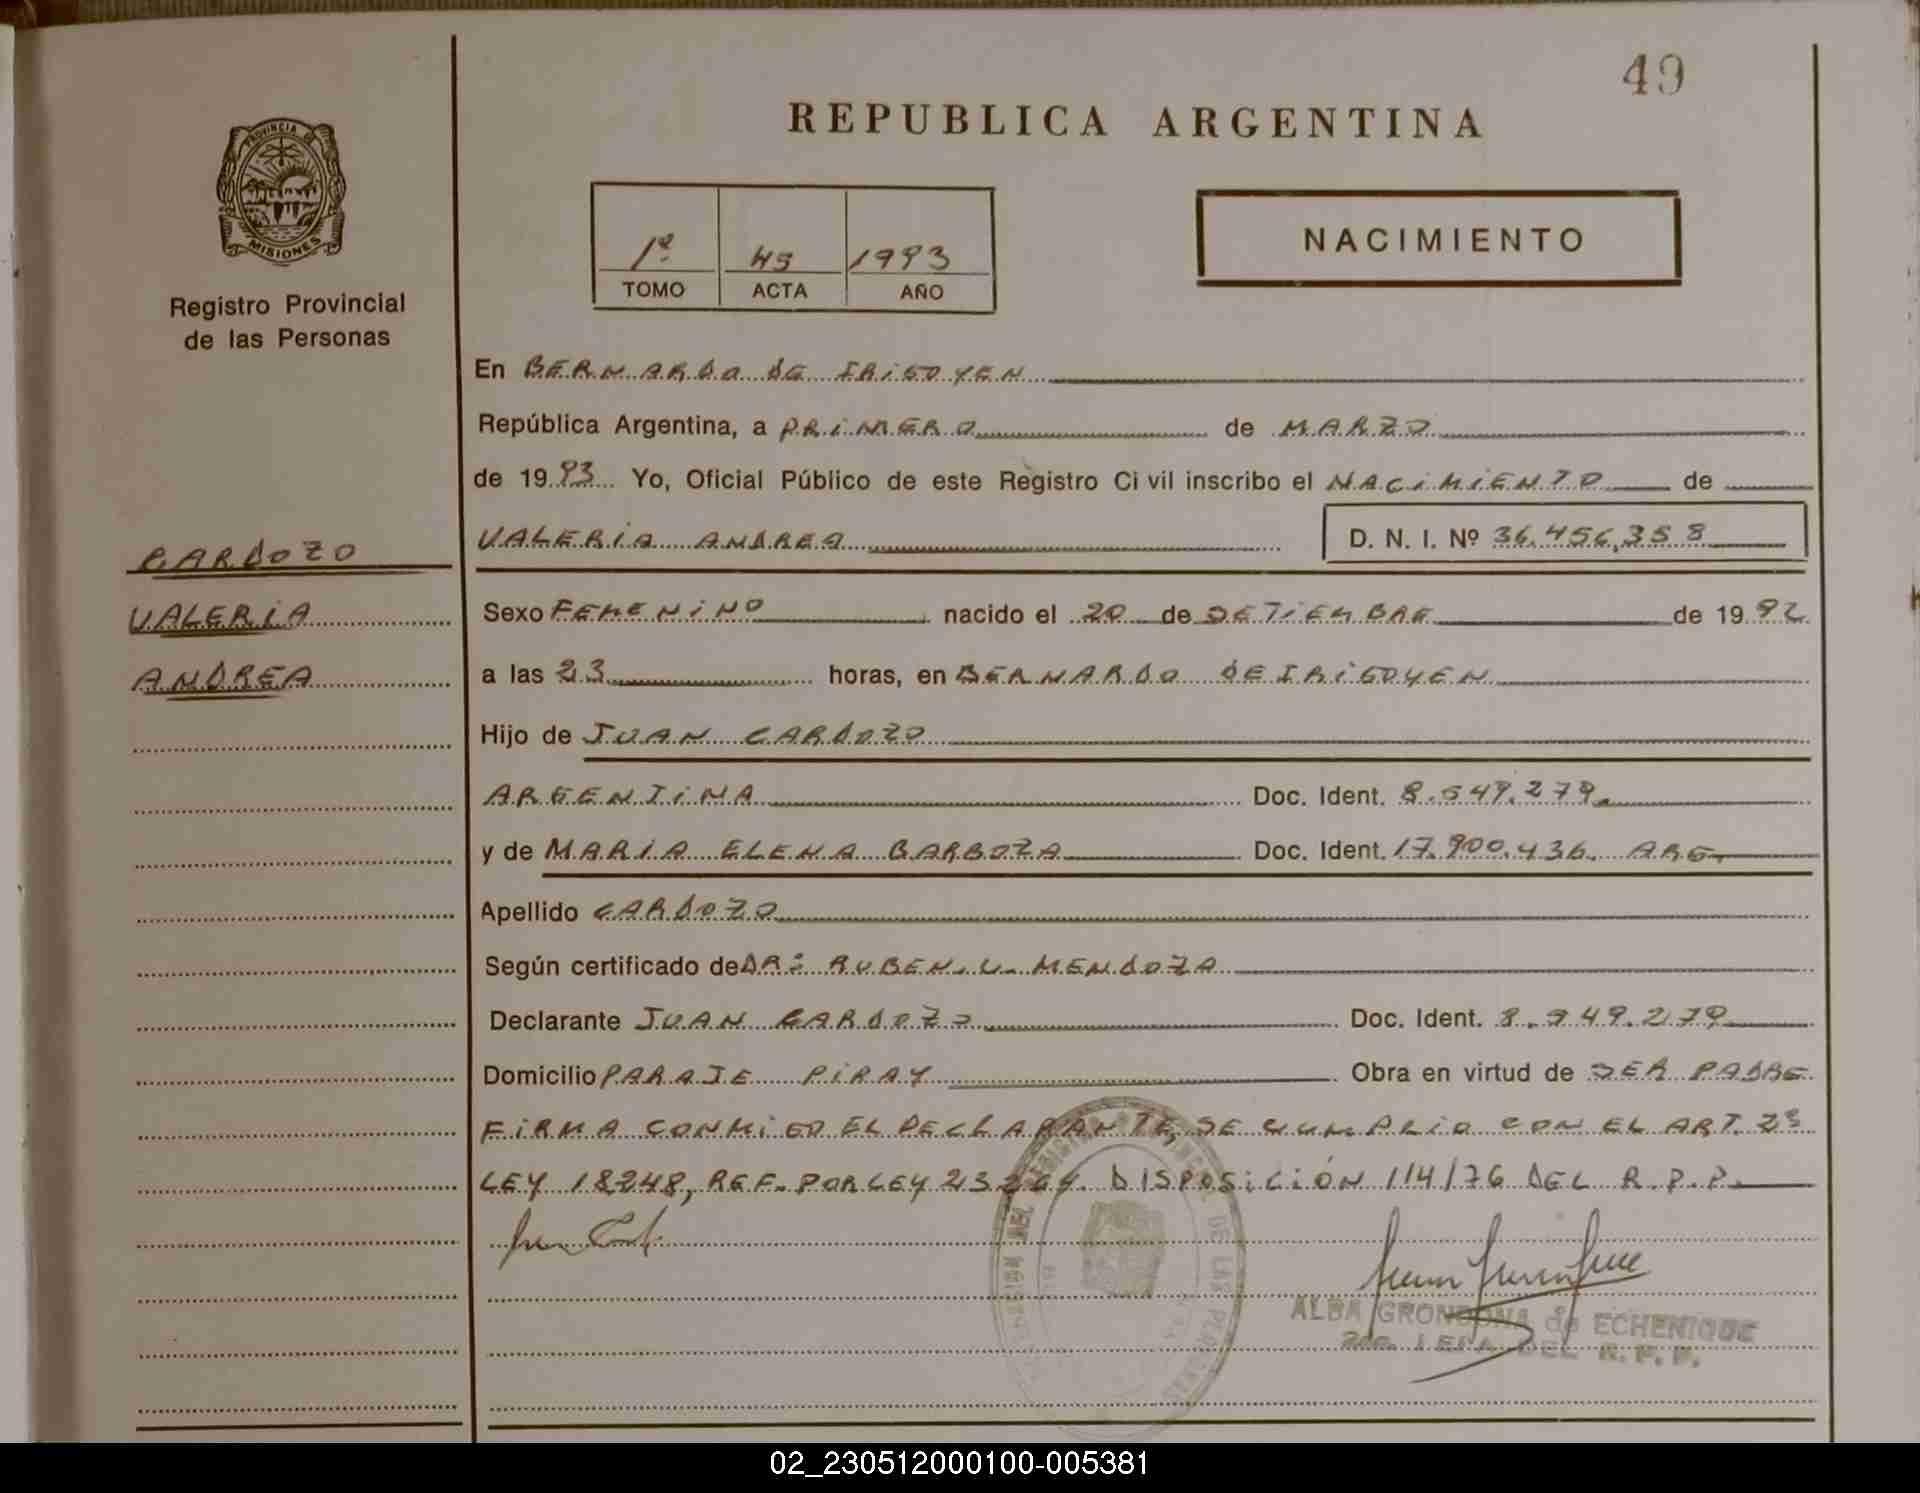 49
REPUBLICA ARGENTINA
PROVINCIA DE
MISIONES
Registro Provincial
de las Personas
1º 45 1993
TOMO ACTA AÑO
NACIMIENTO
En BERNARDO DE IRIGOYEN
República Argentina, a PRIMERO de MARZO
de 1993 Yo, Oficial Público de este Registro Civil inscribo el NACIMIENTO de
VALERIA ANDREA D. N. I. Nº 36.456.358
CARDOZO
VALERIA
ANDREA
Sexo FEMENINO nacido el 20 de SETIEMBRE de 1992
a las 23 horas, en BERNARDO DE IRIGOYEN
Hijo de JUAN CARDOZO
ARGENTINA Doc. Ident. 8.549.279
y de MARIA ELENA BARBOZA Doc. Ident. 17.900.436. ARG.
Apellido CARDOZO
Según certificado de DR: RUBEN. U. MENDOZA
Declarante JUAN CARDOZO Doc. Ident. 8.549.279
Domicilio PARAJE PIRAY Obra en virtud de SER PADRE
FIRMA CONMIGO EL DECLARANTE, SE CUMPLIO CON EL ART. 2º
LEY 18248, REF. POR LEY 23264. DISPOSICIÓN 114/76 DEL R.P.P.
ALBA GRONDONA de ECHENIQUE
DEL R. P. P.
02_230512000100-005381